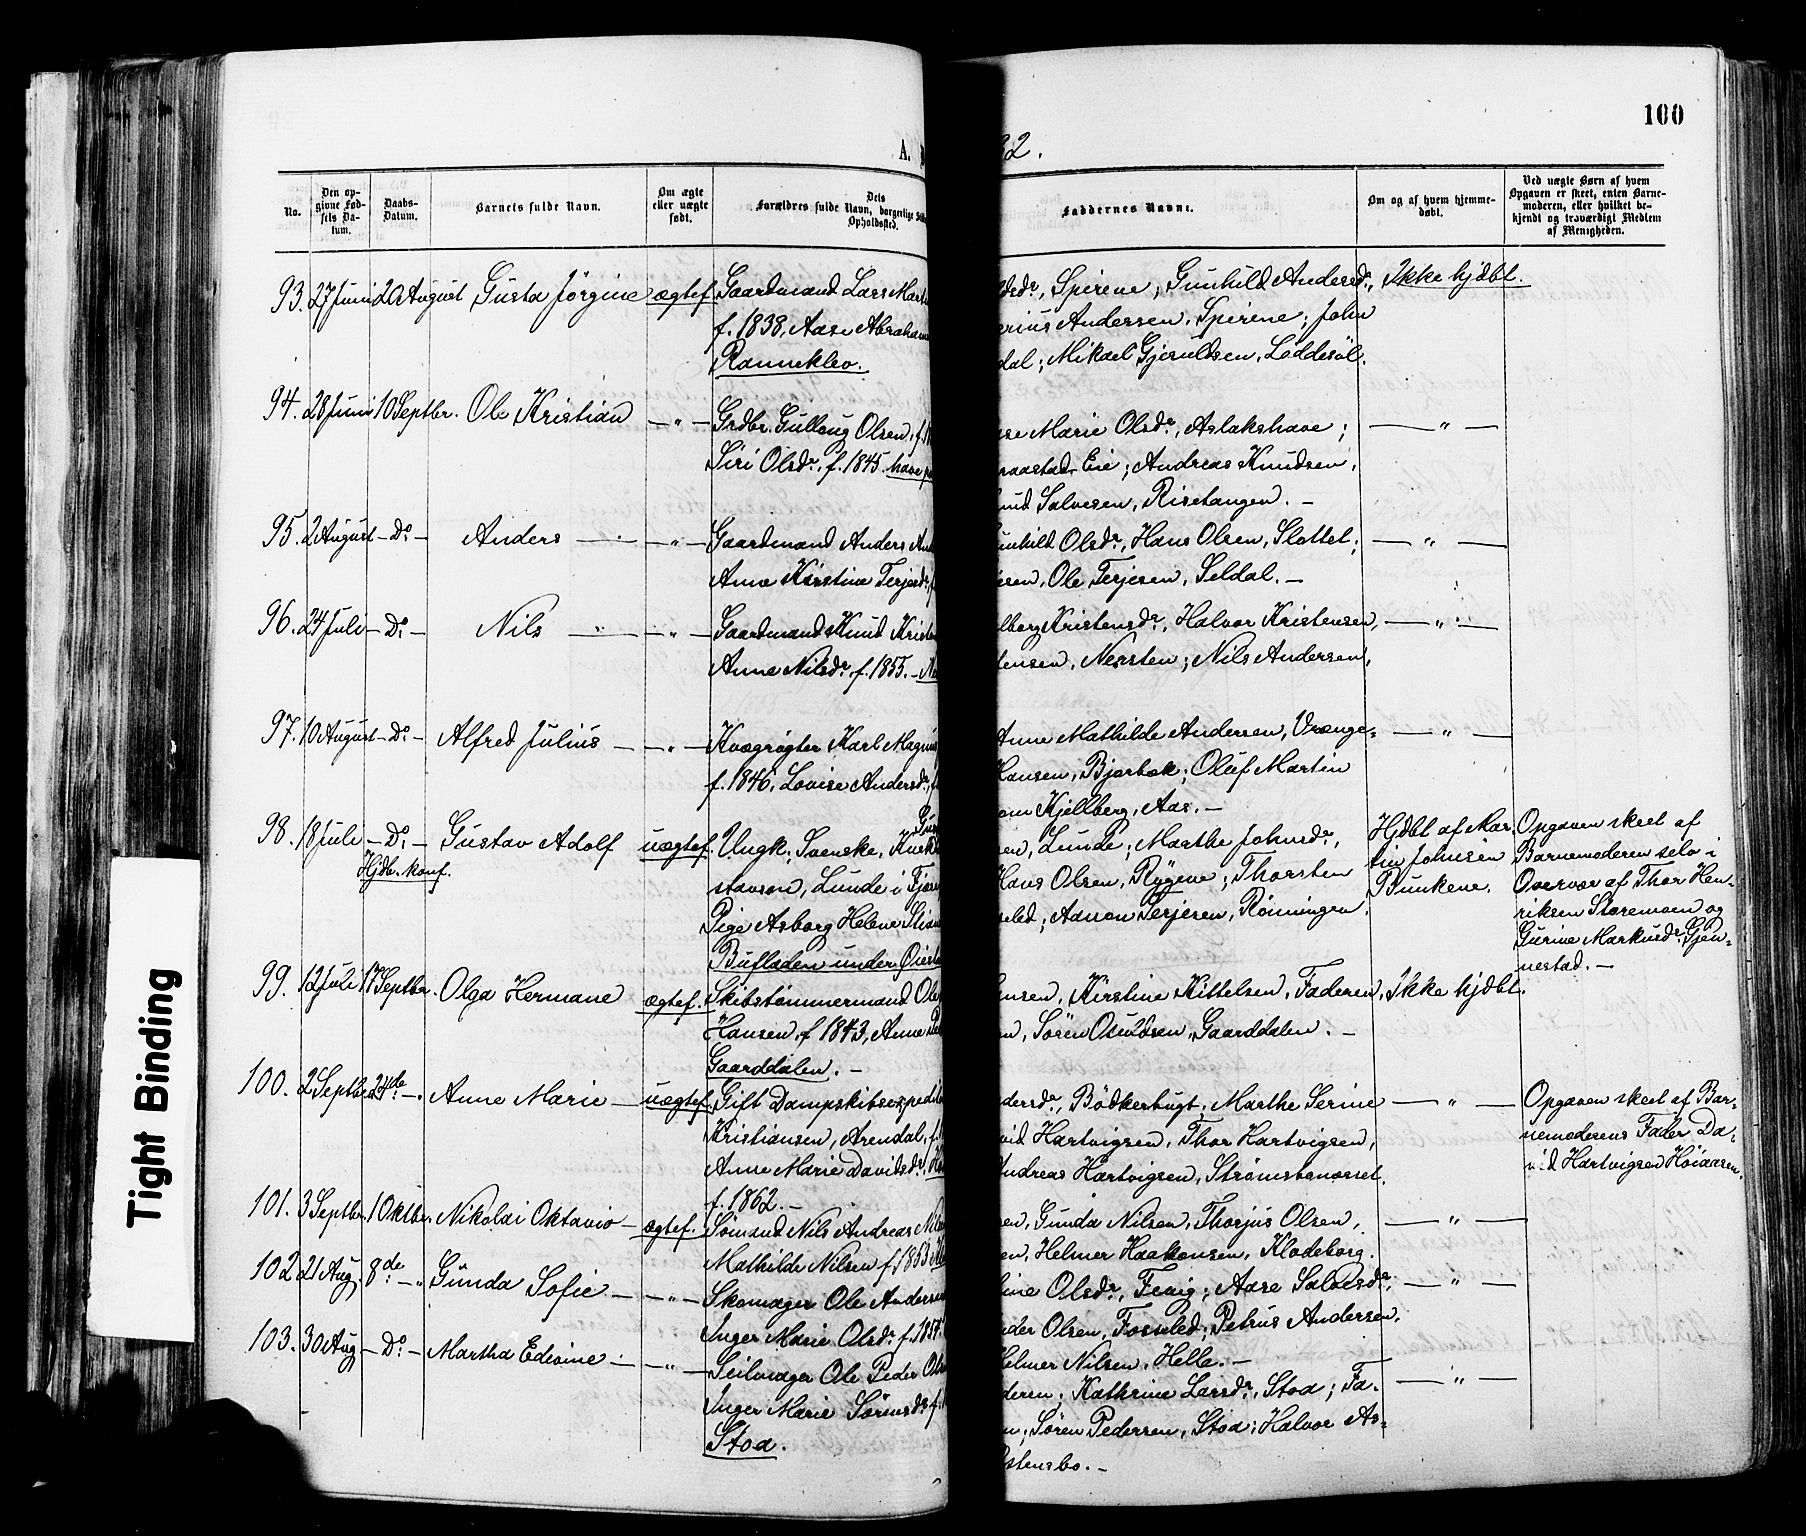 100
A.
82.
No.
Den op-
givne Fød-
sels Da-
tum.
Daabs-
Datum.
Barnets fulde Navn.
Om ægte
eller uægte
født.
Dets
Forældres fulde Navn, borgerlige
Opholdssted.
Faddernes Navne.
Om og af hvem hjemme-
døbt.
Ved uægte Børn af hvem
Opgaven er skeet, enten Barne-
moderen, eller hvilket be-
kjendt og troværdigt Medlem
af Menigheden.
93. 27 Juni 20 August Gusta Jørgine ægtef. Gaardmand Lars Mart
f. 1838, Aase Abraham
Ranneklev.
dsdr, Spirene; Gunhild Andersdr, Ikke hjdbt.
erius Andersen, Spirene; John
dal; Mikael Gjeruldsen, Løddesøl.
94. 28 Juni 10 Septbr. Ole Kristian — „ — Grdbr. Gulleug Olsen,
Siri Olsdr. f. 1845.
Marie Olsdr, Aslakshave; — „ —
raastad Eie; Andreas Knudsen,
und Salvesen, Risetangen. —
95. 2 August — Do — Anders — „ — Gaardmand Anders
Anne Kirstine Terjesdr,
unhild Olsdr, Hans Olsen, Slottet; — „ —
sen, Ole Terjesen, Seldal. —
96. 24 Juli — Do — Nils — „ — „ — Gaardmand Knud Kristen
Anne Nilsdr. f. 1855.
lborg Kristensdr, Halvor Kristensen, — „ —
tensen, Nersten; Nils Andersen,
97. 10 August — Do — Alfred Julius — „ — Kvægrøgter Karl Magnus
f. 1846, Lovise Andersdr,
Anne Mathilde Andersen, Vrænge- — „ —
Hansen, Bjorbæk; Oluf Martin
Kjellberg, Aas. —
98. 18 Juli — Do — Gustav Adolf uægtef. Ungk. Svenske,
Hjdb. konf.
stavson, Lunde i Fjære
Pige Asborg Helene
Bufladen under Øiest
en, Lunde; Marthe Johnsdr,
Hans Olsen, Rygene; Thorsten
eled; Adnon Terjesen, Rønningen.
Hjdbt af Mar-
tin Johnsen
Bunkene.
Opgaven skeet af
Barnemoderen selv i
Overvær af Thor Hen-
riksen Støremoen og
Gurine Markusdr. Gjen-
nestad. —
99. 12 Juli 17 Septbr. Olga Hermane ægtef. Skibstømmermand Ole
Hansen, f 1843, Anne
Gaarddalen. —
nsen, Kirstine Kittelsen, Faderen, Ikke hjdbt.
n, Søren Osuldsen, Gaarddalen. —
100. 2 Septbr. 24de — Anne Marie — uægtef. Gift Dampskibsexpedit
Kristiansen, Arendal,
Anne Marie Davidsdr,
f. 1862. —
ndersdr, Bödkerbugt; Marthe Serine — „ —
vid Hartvigsen, Thor Hartvigsen,
Andreas Hartvigsen, Strømsbonæsset.
Opgaven skeet af Bar-
nemoderens Fader Da-
vid Hartvigsen Høiaasen.
101. 3 Septbr. 1 Oktbr. Nikolai Oktavio — ægtef. Sømand Nils Andreas
Mathilde Nilsen f. 1853
en, Gunda Nilsen, Thorjus Olsen, — „ —
en, Helmer Haakonsen, Klodeborg.
102 21 Aug. 8de — „ Gunda Sofie — „ — Skomager Ole Andersen
Inger Marie Olsdr. f. 1854.
ine Olsdr, Fevig; Aase Salvesdr, — „ —
nder Olsen, Fosseled; Petrus Andersen,
Helmer Nilsen, Helle. —
103. 30 Aug — Do — Martha Edevine — „ — Seilmager Ole Peder
Inger Marie Sørensdr. f.
Stoa.
deren; Kathrine Larsdr, Stoa; Fa- — „ —
n; Søren Pedersen, Stoa; Halvor As-
stensbo. —
Tight Binding